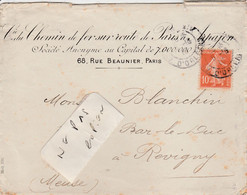 Cie du Chemin de fer sur route de Paris à Arpajon
Société Anonyme au Capital de 7.000.000
68, RUE BEAUNIER, PARIS
10
Blanchin
Bar-le-Duc
à Revigny
(Meuse)